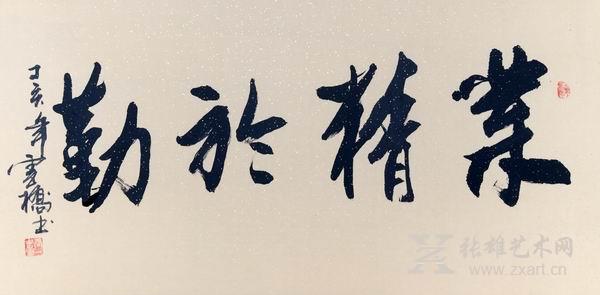 業精於勤
丁亥年雲橋书
张雄艺术网
www.zxart.cn